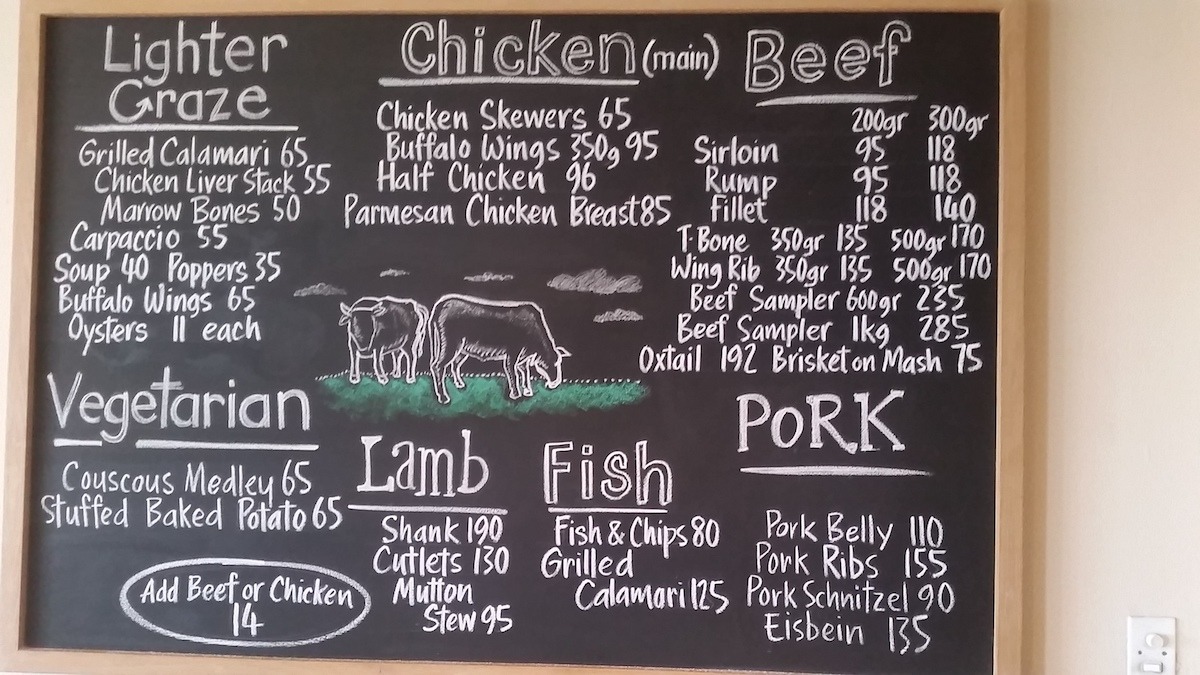 Lighter
Graze
Grilled Calamari 65
Chicken Liver Stack 55
Marrow Bones 50
Carpaccio 55
Soup 40 Poppers 35
Buffalo Wings 65
Oysters 11 each
Vegetarian
Couscous Medley 65
Stuffed Baked Potato 65
Add Beef or Chicken
14
Chicken (main)
Chicken Skewers 65
Buffalo Wings 350g 95
Half Chicken 96
Parmesan Chicken Breast 85
Lamb
Shank 190
Cutlets 130
Mutton
Stew 95
Fish
Fish & Chips 80
Grilled
Calamari 125
Beef
200gr 300gr
Sirloin 95 118
Rump 95 118
Fillet 118 140
T-Bone 350gr 135 500gr 170
Wing Rib 350gr 135 500gr 170
Beef Sampler 600gr 235
Beef Sampler 1kg 285
Oxtail 192 Brisket on Mash 75
PoRK
Pork Belly 110
Pork Ribs 155
Pork Schnitzel 90
Eisbein 135